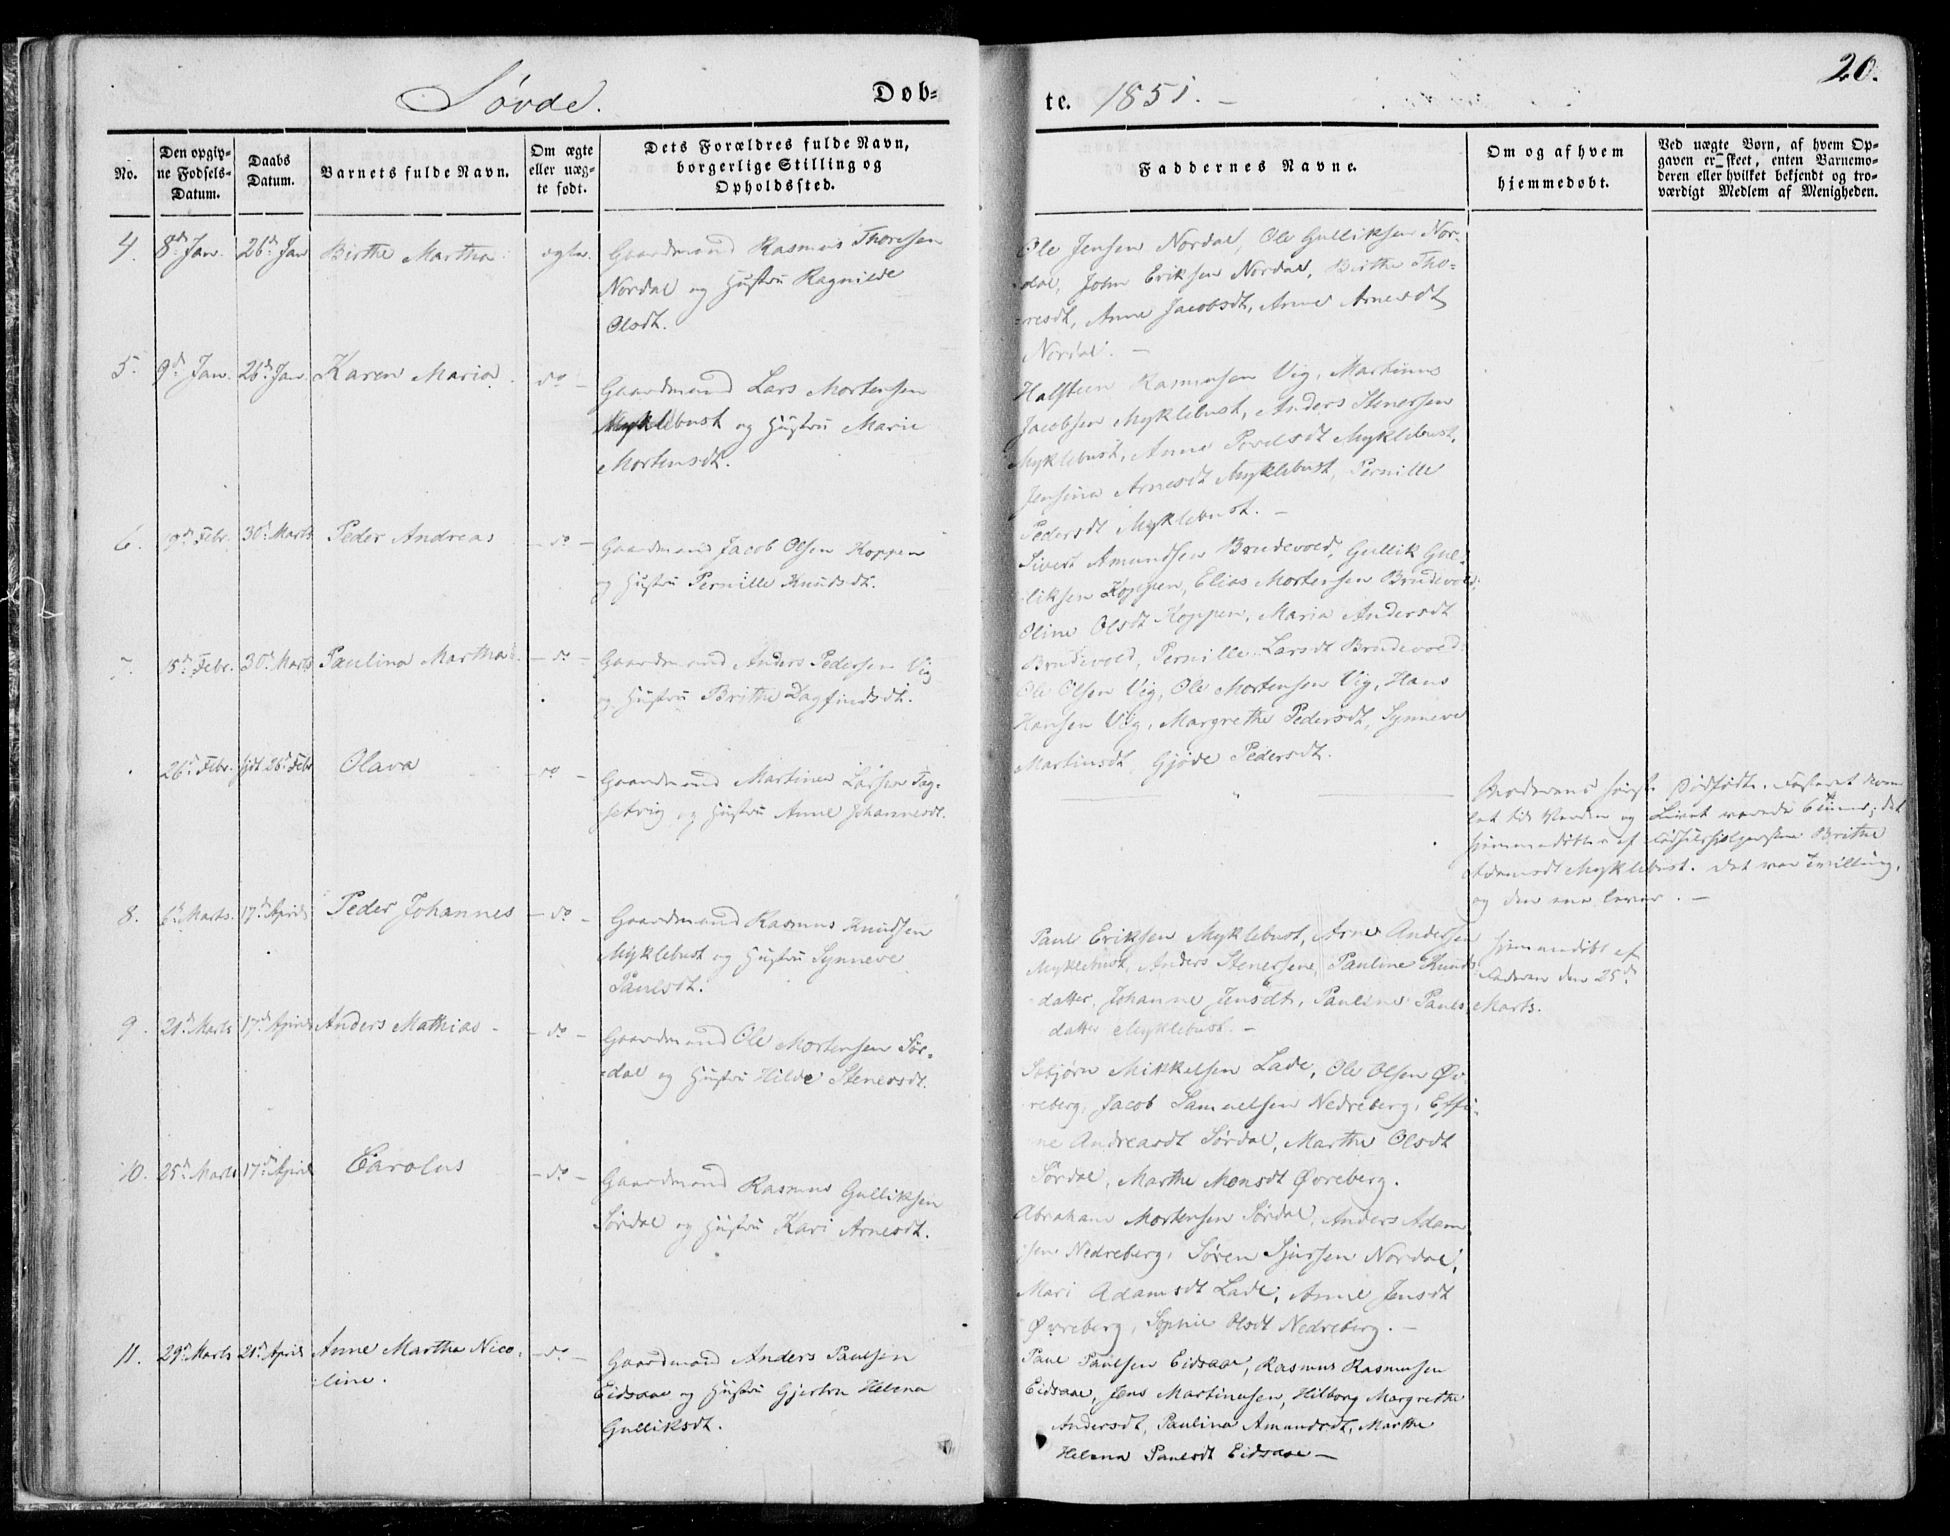 Søvde.
Døb-
te. 1851. —
20.
No.
Den opgiv-
ne Fødsels-
Datum.
Daabs
Datum.
Barnets fulde Navn.
Om ægte
eller uæg-
te født.
Dets Forældres fulde Navn,
borgerlige Stilling og
Opholdssted.
Faddernes Navne.
Om og af hvem
hjemmedøbt.
Ved uægte Børn, af hvem Op-
gaven er skeet, enten Barnemo-
deren eller hvilket bekjendt og tro-
værdigt Medlem af Menigheden.
4. 8d Jan. 26d Jan Birthe Martha. ægte.
Gaardmand Rasmus Thoresen
Nordal og Hustru Ragnilde
Olsdt.
Ole Jensen Nordal, Ole Gulliksen Nor-
dal, John Eriksen Nordal, Birthe Tho-
resdt, Anne Jacobsdt, Anne Arnesdt
Nordal. —
5. 9d Jan. 26d Jan. Karen Maria. do —
Gaardmand Lars Mortensen
Myklebust og Hustru Marie
Mortensdt.
Halsteen Rasmusen Vig, Martinus
Jacobsen Myklebust, Anders Stenersen
Myklebust, Anne Povelsdt Myklebust,
Jensina Arnesdt Myklebust, Pernille
Pedersdt Myklebust. —
6. 9d Febr. 30d Marts Peder Andreas — do —
Gaardmand Jacob Olsen Koppen
og Hustru Pernille Knudsdt.
Sivert Amundsen Brudevold, Gullik Gul-
liksen Koppen, Elias Mortensen Brudevold,
Oline Olsdt Koppen, Maria Andersdt
Brudevold, Pernille Larsdt Brudevold.
7. 15d Febr. 30d Marts Paulina Martha. — do —
Gaardmand Anders Pedersen Vig
og Hustru Brithe Dagfindsdt.
Ole Olsen Vig, Ole Mortensen Vig, Hans
Hansen Vig, Margrethe Pedersdt, Synneve
Martinsdt, Gjøde Pedersdt.
26d Febr. hjdt 26d Febr Olava — do —
Gaardmand Martinus Larsen
og Hustru Anne Johannesdt.
Dødfødt. Fosteret kom
hjemmedøbt af Brithe
Adamsdt Myklebust. Det var Tvilling,
og den ene lever. —
8. 6d Marts. 17d April Peder Johannes — do —
Gaardmand Rasmus Knudsen
Myklebust og Hustru Synneve
Paulsdt.
Paul Eriksen Myklebust, Arne Andersen
Myklebust, Anders Stenersen, Pauline Knuds-
datter, Johanne Jensdt, Pauline Pauls-
datter Myklebust. —
hjemmedøbt af
Faderen den 25d
Marts.
9. 21d Marts 17d April Anders Mathias — — do —
Gaardmand Ole Mortensen Sør-
dal og Hustru Hilde Stenersdt.
Mikkelsen Lade, Ole Olsen Øv-
reberg, Jacob Samuelsen Nedreberg,
Andreasdt Sørdal, Marthe Olsdt
Sørdal, Marthe Monsdt Øvreberg.
10. 25d Marts 17d April Carolus — do —
Gaardmand Rasmus Gulliksen
Sørdal og Hustru Kari Arnesdt.
Abraham Mortensen Sørdal, Anders Adam-
sen Nedreberg, Søren Sjursen Nordal,
Mari Adamsdt Lade, Anne Jensdt
Øvreberg, Sophie Olsdt Nedreberg. —
11. 29d Marts 21d April Anne Martha Nico-
line. — do —
Gaardmand Anders Paulsen
Eidsaae og Hustru Gjertru Helena
Gulliksdt.
Paul Paulsen Eidsaae, Rasmus Rasmusen
Eidsaae, Jens Martinusen, Hilborg Margrethe
Andersdt, Paulina Amundsdt, Marthe
Helena Paulsdt Eidsaae —